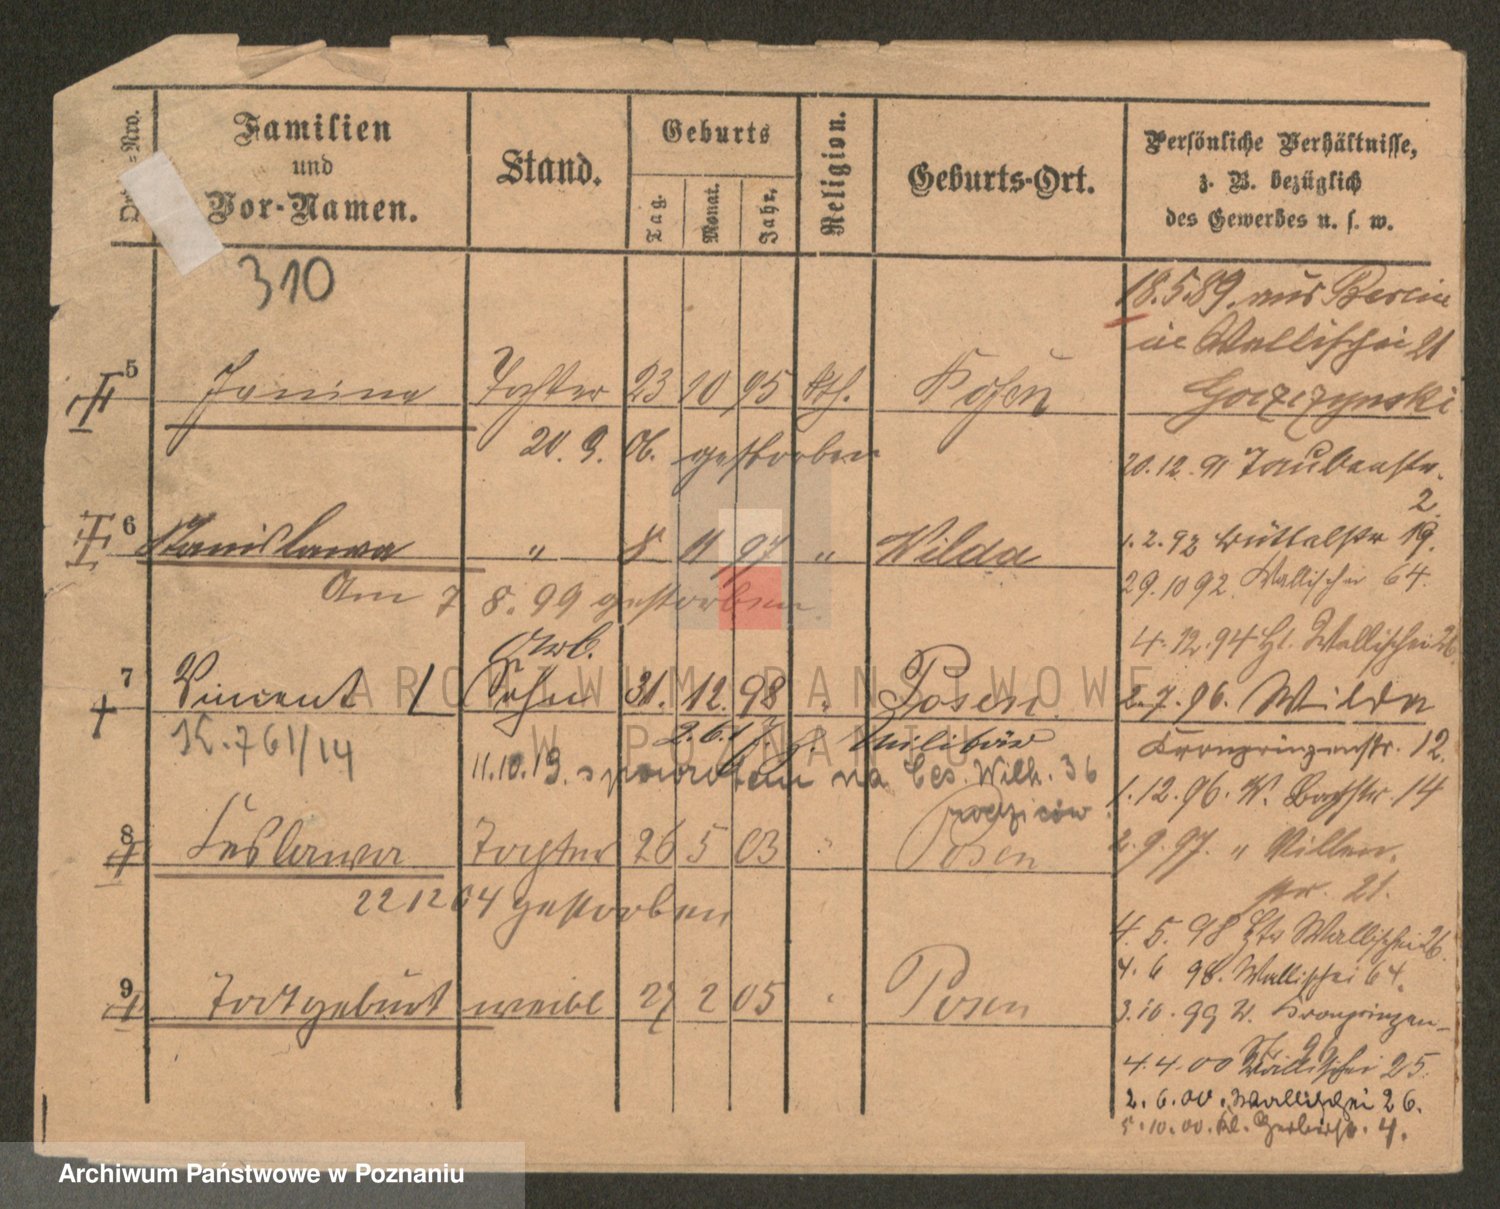 Familien
und
Vor-Namen.
Stand.
Geburts
Tag.
Monat.
Jahr.
Religion.
Geburts-Ort.
Persönliche Verhältnisse,
z. B. bezüglich
des Gewerbes u. s. w.
310
5 Janina Tochter 23 10 95 kth. Posen
20. 9. 06. gestorben
6 Stanislawa " 8 11 97 " Wilda
Am 7 8. 99 gestorben
7 Vincent Sohn 31. 12. 98 " Posen
K. 761/14
2. 6. 17. z. Militär
11.10.19. na Ces. Wilh. 36
8 Leslawa Tochter 26 5 03 " Posen
22 12 04 gestorben
9 Todtgeburt weibl 27 2 05 " Posen
18.5.89. aus Berlin
in Wallischei 21
Goczczynski
20.12.91 Taubenstr.
2.
1.2.92 Büttelstr 19.
29.10 92. Wallischei 64.
4.12.94 Hl. Wallischei 26.
2.7.96. Wilda
Kronprinzenstr. 12.
1.12.96. W. Bachstr. 14
2.9.97. " Villen-
str. 21.
4.5.98 Wallischei 26.
4.6 98. Wallischei 64.
3.10.99 W. Kronprinzen-
4.4.00 Wallischei 25.
2.6.00. Wallischei 26.
5.10.00. Kl. Gerberstr. 4.
ARCHIWUM PAŃSTWOWE
W POZNANIU
Archiwum Państwowe w Poznaniu